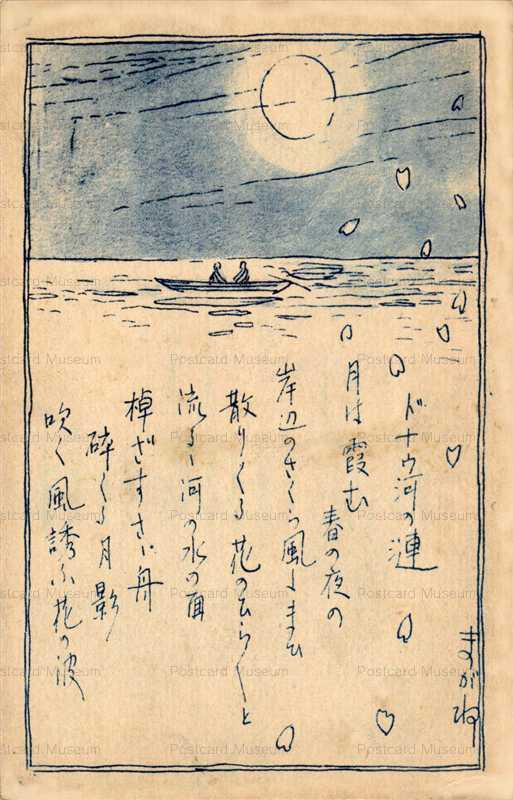 ドナウ河の漣
月は霞む
春の夜の
岸辺のさくら風にまひ
散りくる花のひら〳〵と
流るゝ河の水の面
棹さすさい舟
砕くる月影
吹く風誘ふ花の波
まがね
Postcard Museum